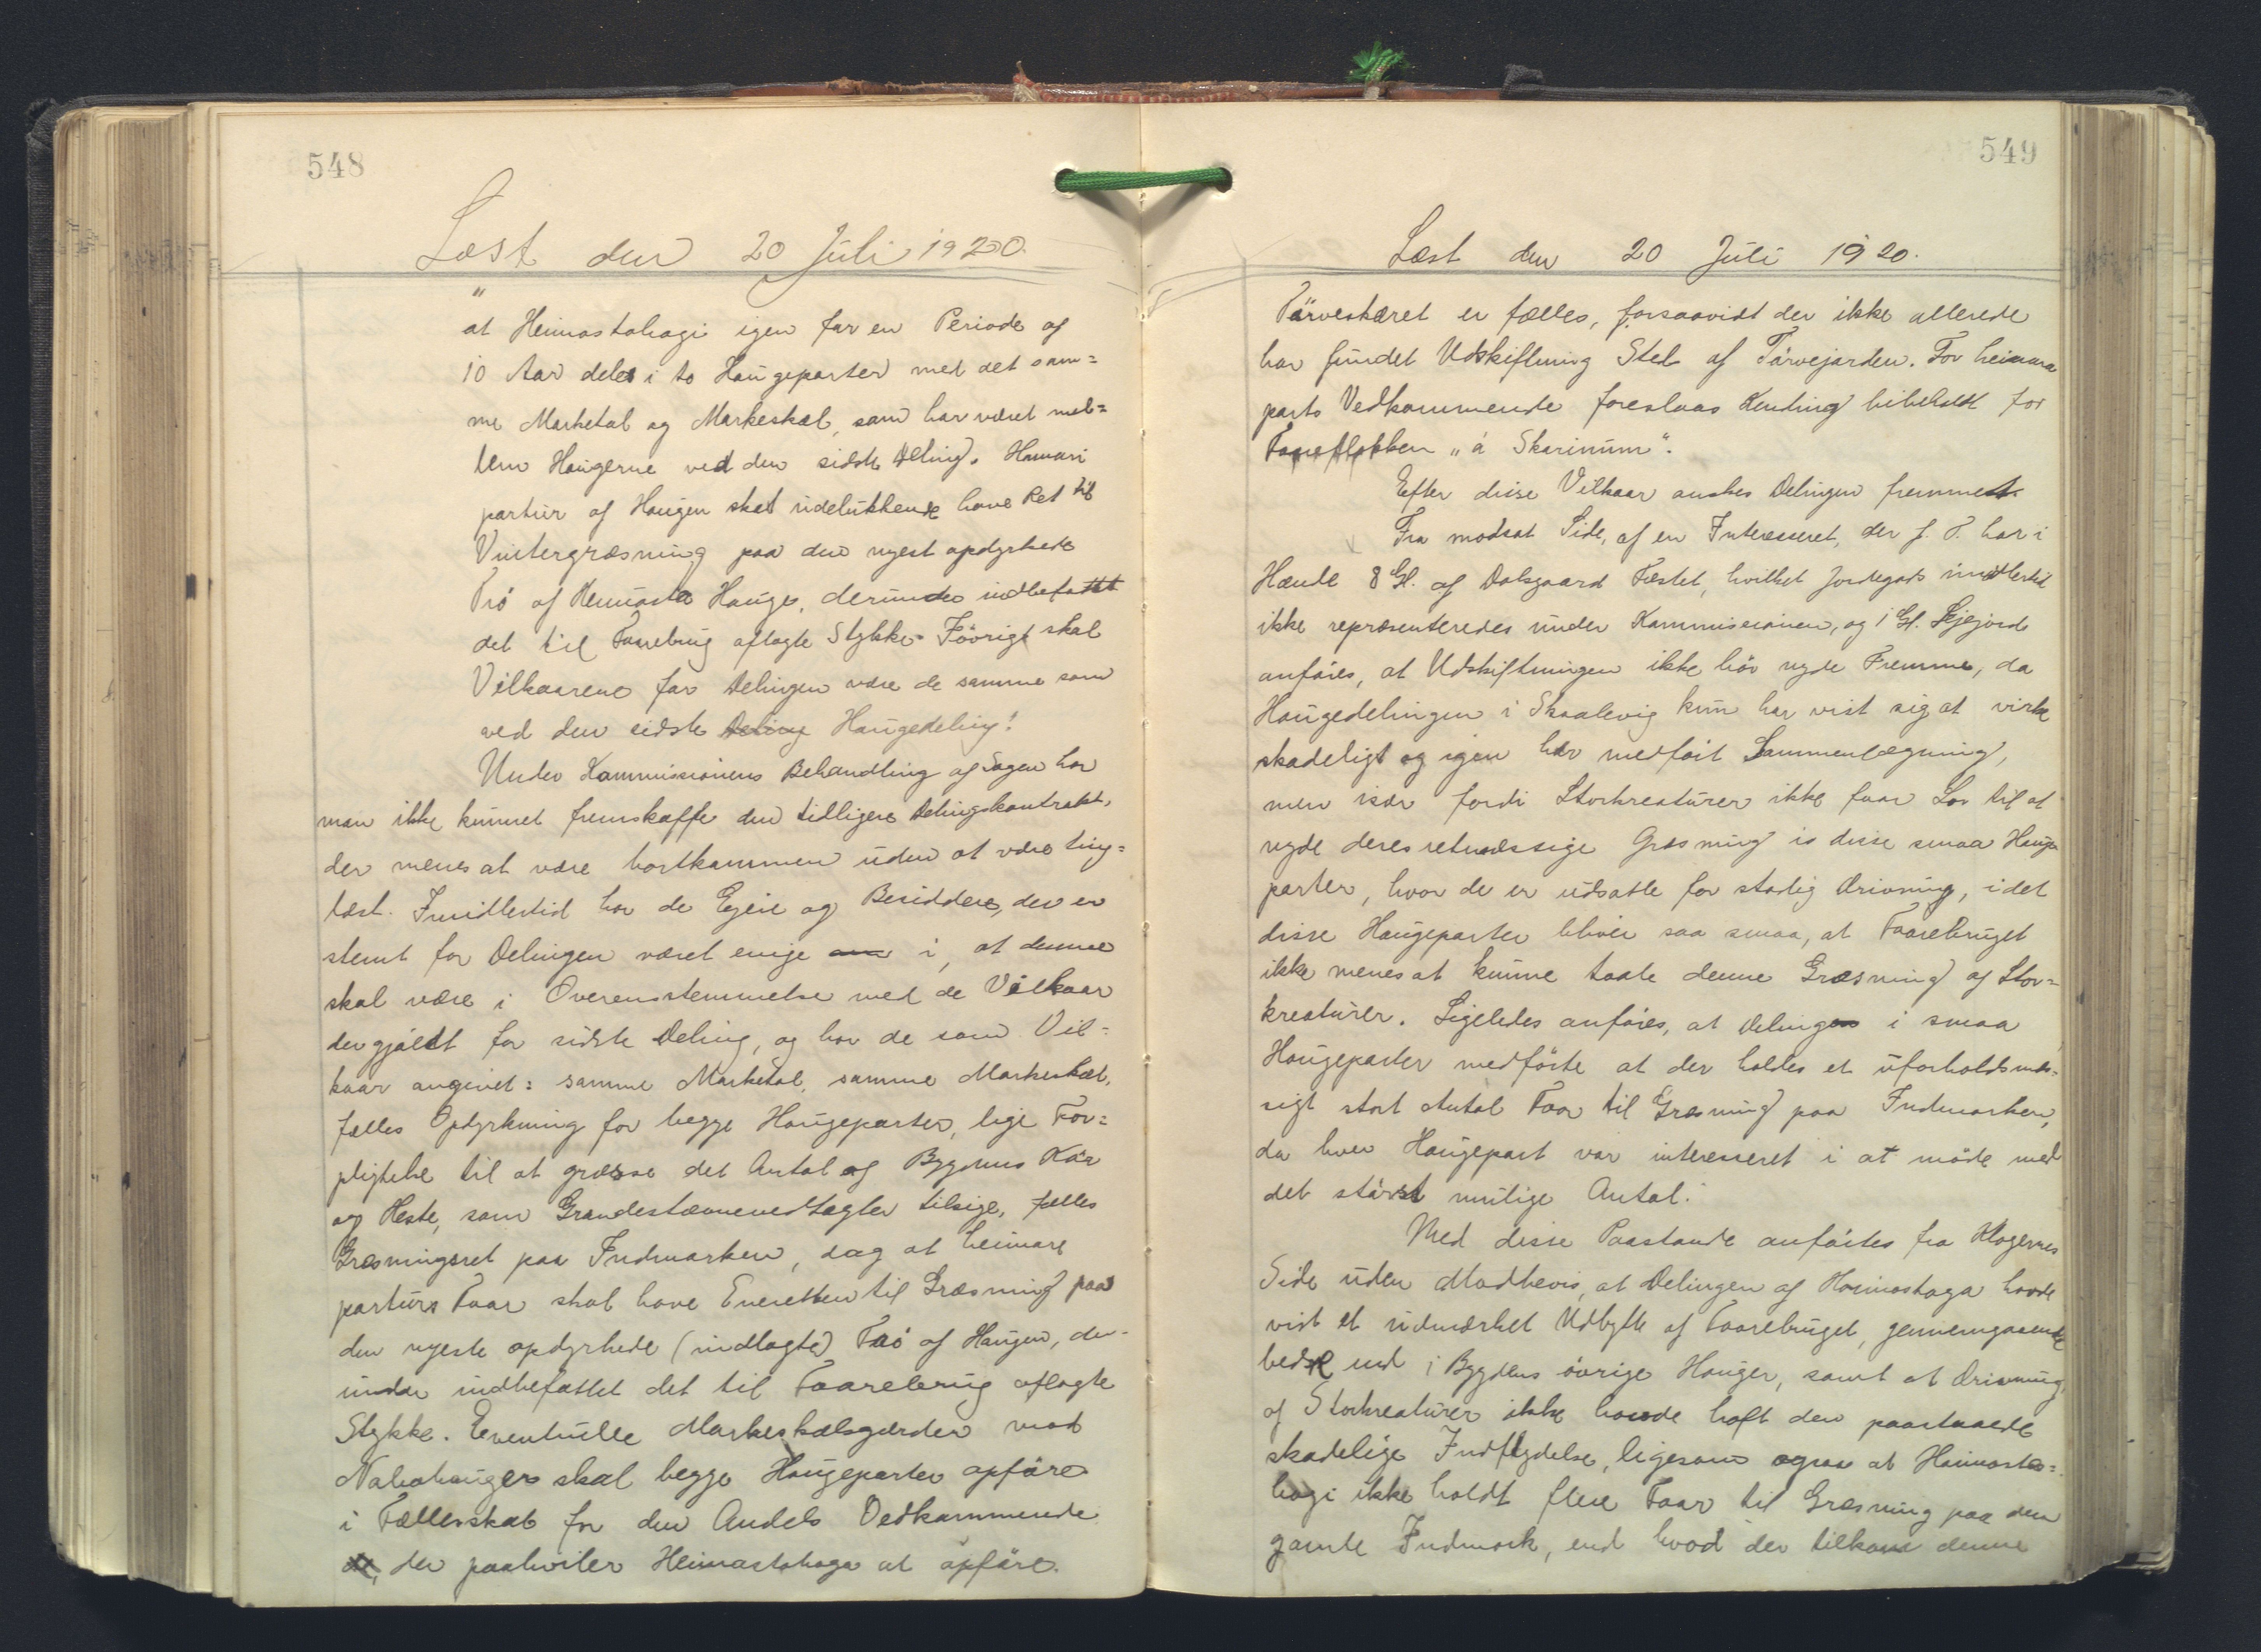 548
Læst den 20 Juli 1920.
"
at Heimastahagi igen for en Periode af
10 Aar deles i to Haugeparter med det sam=
me Marketal og Markeskæl, som har været mel=
lem Haugerne ved den sidste Deling. Hamari
partur af Haugen skal udelukkende have Ret til
Vintergræsning paa den nyest opdyrkede
Trö af Heimasta Hauge, derunder indbefattet
det til Faarebrug aflagte Stykke. Iövrigt skal
Vilkaarene for Delingen være de samme som
ved den sidste Deling Haugedeling!
Under Kommissionens Behandling af Sagen har
man ikke kunnet fremskaffe den tidligere Delingskontrakt,
der menes at være bortkommen uden at være ting=
læst. Imidlertid har de Ejere og Besiddere, der er
stemt for Delingen været enige om i, at denne
skal være i Overensstemmelse med de Vilkaar
der gjaldt for sidste Deling, og har de som Vil=
kaar angivet: samme Marketal, samme Markeskæl,
fælles Opdyrkning for begge Haugeparter, lige For=
pligtelse til at græsse det Antal af Bygdens Kör
og Heste, som Grandestævnevedtægter tilsige, fælles
Græsningsret paa Indmarken, dog at heimara
parturs Faar skal have Eneretten til Græsning paa
den nyeste opdyrkede (indlagte) Trö af Haugen, der=
under indbefattet det til Faarebrug aflagte
Stykke. Eventuelle Markeskælsgærder mod
Nabohauger skal begge Haugeparter opföre
i Fællesskab for den Andels Vedkommende
de, der paahviler Heimastahaga at opföre.
549
Læst den 20 Juli 1920.
Törveskæret er fælles, forsaavidt der ikke allerede
har fundet Udskiftning Sted af Törvejorden. For heimara
parts Vedkommende foreslaas Kending bibeholdt for
Faareflokken "á Skarinum".
Efter disse Vilkaar önskes Delingen fremmet.
Fra modsat Side, af en Interesseret, der f. T. har i
Hænde 8 Gl. af Dalsgaard Fæstet, hvilket Jordegods imidlertid
ikke repræsenteredes under Kommissionen, og 1 Gl. Ejejord
anföres, at Udskiftningen ikke bör nyde Fremme, da
Haugedelingen i Skaalevig kun har vist sig at virke
skadeligt og igen har medfört Sammenlægning,
men især fordi Storkreaturer ikke faar Lov til at
nyde deres retmæssige Græsning i disse smaa Hauge
parter, hvor de er udsatte for stadig Drivning, idet
disse Haugeparter bliver saa smaa, at Faarebruget
ikke menes at kunne taale denne Græsning af Stor=
kreaturer. Ligeledes anföres, at Delingen i smaa
Haugeparter medförte at der holdes et uforholdsmæs=
sigt stort Antal Faar til Græsning paa Indmarken,
da hver Haugepart var interesseret i at möde med
det störst mulige Antal.
Med disse Paastande anförtes fra Klagernes
Side uden Modbevis, at Delingen af Heimastaga havde
vist et udmærket Udbytte af Faarebruget, gennemgaaende
bedre end i Bygdens övrige Hauger, samt at Drivning
af Storkreaturer ikke havde haft den paastaaede
skadelige Indflydelse, ligesom ogsaa at Heimasta=
hagi ikke holdt flere Faar til Græsning paa den
gamle Indmark, end hvad der tilkom denne